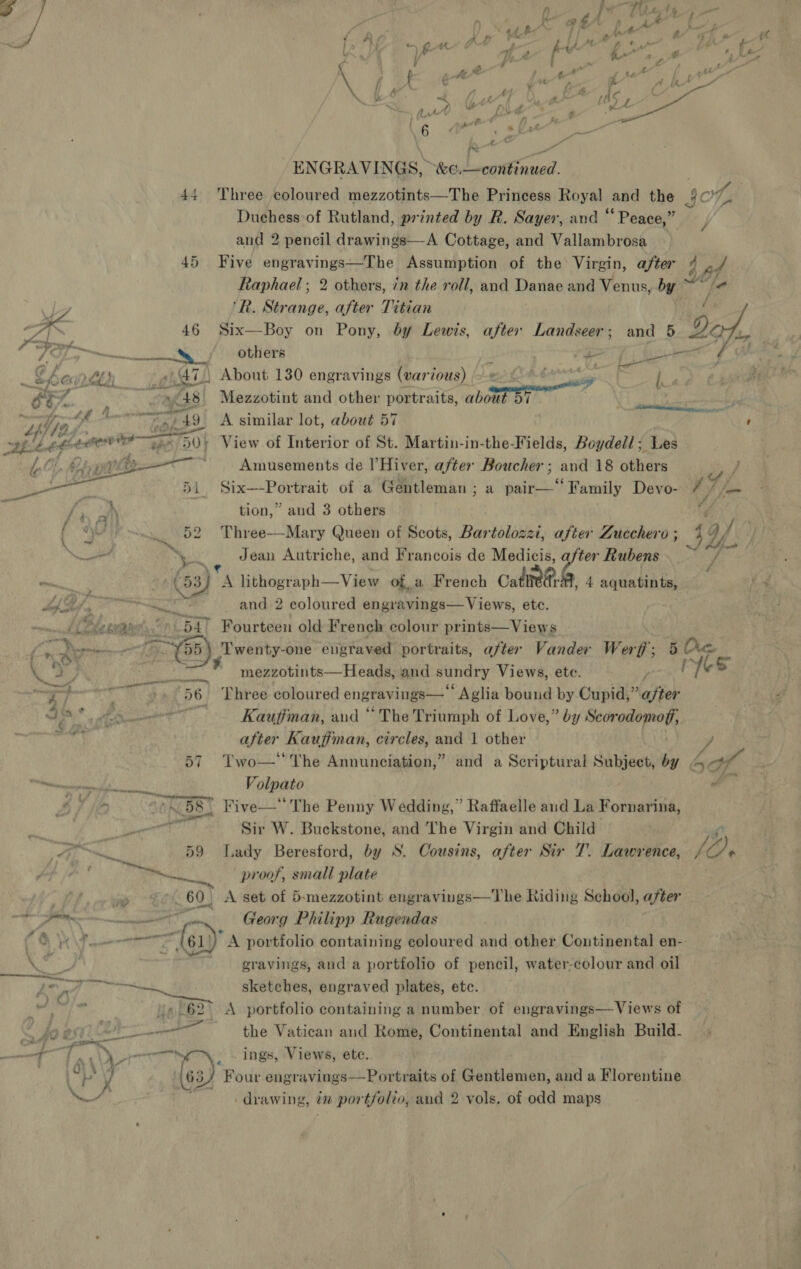 6
ENGRAVINGS, &c.—continued.
44 Three coloured mezzotints—The Princess Royal and the
Duchess of Rutland, printed by R. Sayer, and “Peace,”
and 2 pencil drawings—A Cottage, and Vallambrosa
45 Five engravings—The Assumption of the Virgin, after
Raphael; 2 others, in the roll, and Danae and Venus, by
R. Strange, after Titian
46 Six—Boy on Pony, by Lewis, after Landseer; and 5
others
47 About 130 engravings (various)
48 Mezzotint and other portraits, about 57
49 A similar lot, about 57
50 View of Interior of St. Martin-in-the-Fields, Boydell; Les
Amusements de l’Hiver, after Boucher; and 18 others
51 Six—Portrait of a Gentleman; a pair—“Family Devo-
tion,” and 3 others
52 Three—Mary Queen of Scots, Bartolozzi, after Zucchero;
Jean Autriche, and Francois de Medicis, after Rubens
53 A lithograph—View of a French Cathedral, 4 aquatints,
and 2 coloured engravings—Views, etc.
54 Fourteen old French colour prints—Views
55 Twenty-one engraved portraits, after Vander Werff; 5
mezzotints—Heads, and sundry Views, etc.
56 Three coloured engravings—“Aglia bound by Cupid,” after
Kauffman, and “The Triumph of Love,” by Scorodomoff,
after Kauffman, circles, and 1 other
57 Two—“The Annunciation,” and a Scriptural Subject, by
Volpato
58 Five—“The Penny Wedding,” Raffaelle and La Fornarina,
Sir W. Buckstone, and The Virgin and Child
59 Lady Beresford, by S. Cousins, after Sir T. Lawrence,
proof, small plate
60 A set of 5 mezzotint engravings—The Riding School, after
Georg Philipp Rugendas
61 A portfolio containing coloured and other Continental en-
gravings, and a portfolio of pencil, water-colour and oil
sketches, engraved plates, etc.
62 A portfolio containing a number of engravings—Views of
the Vatican and Rome, Continental and English Build-
ings, Views, etc.
63 Four engravings—Portraits of Gentlemen, and a Florentine
drawing, in portfolio, and 2 vols. of odd maps